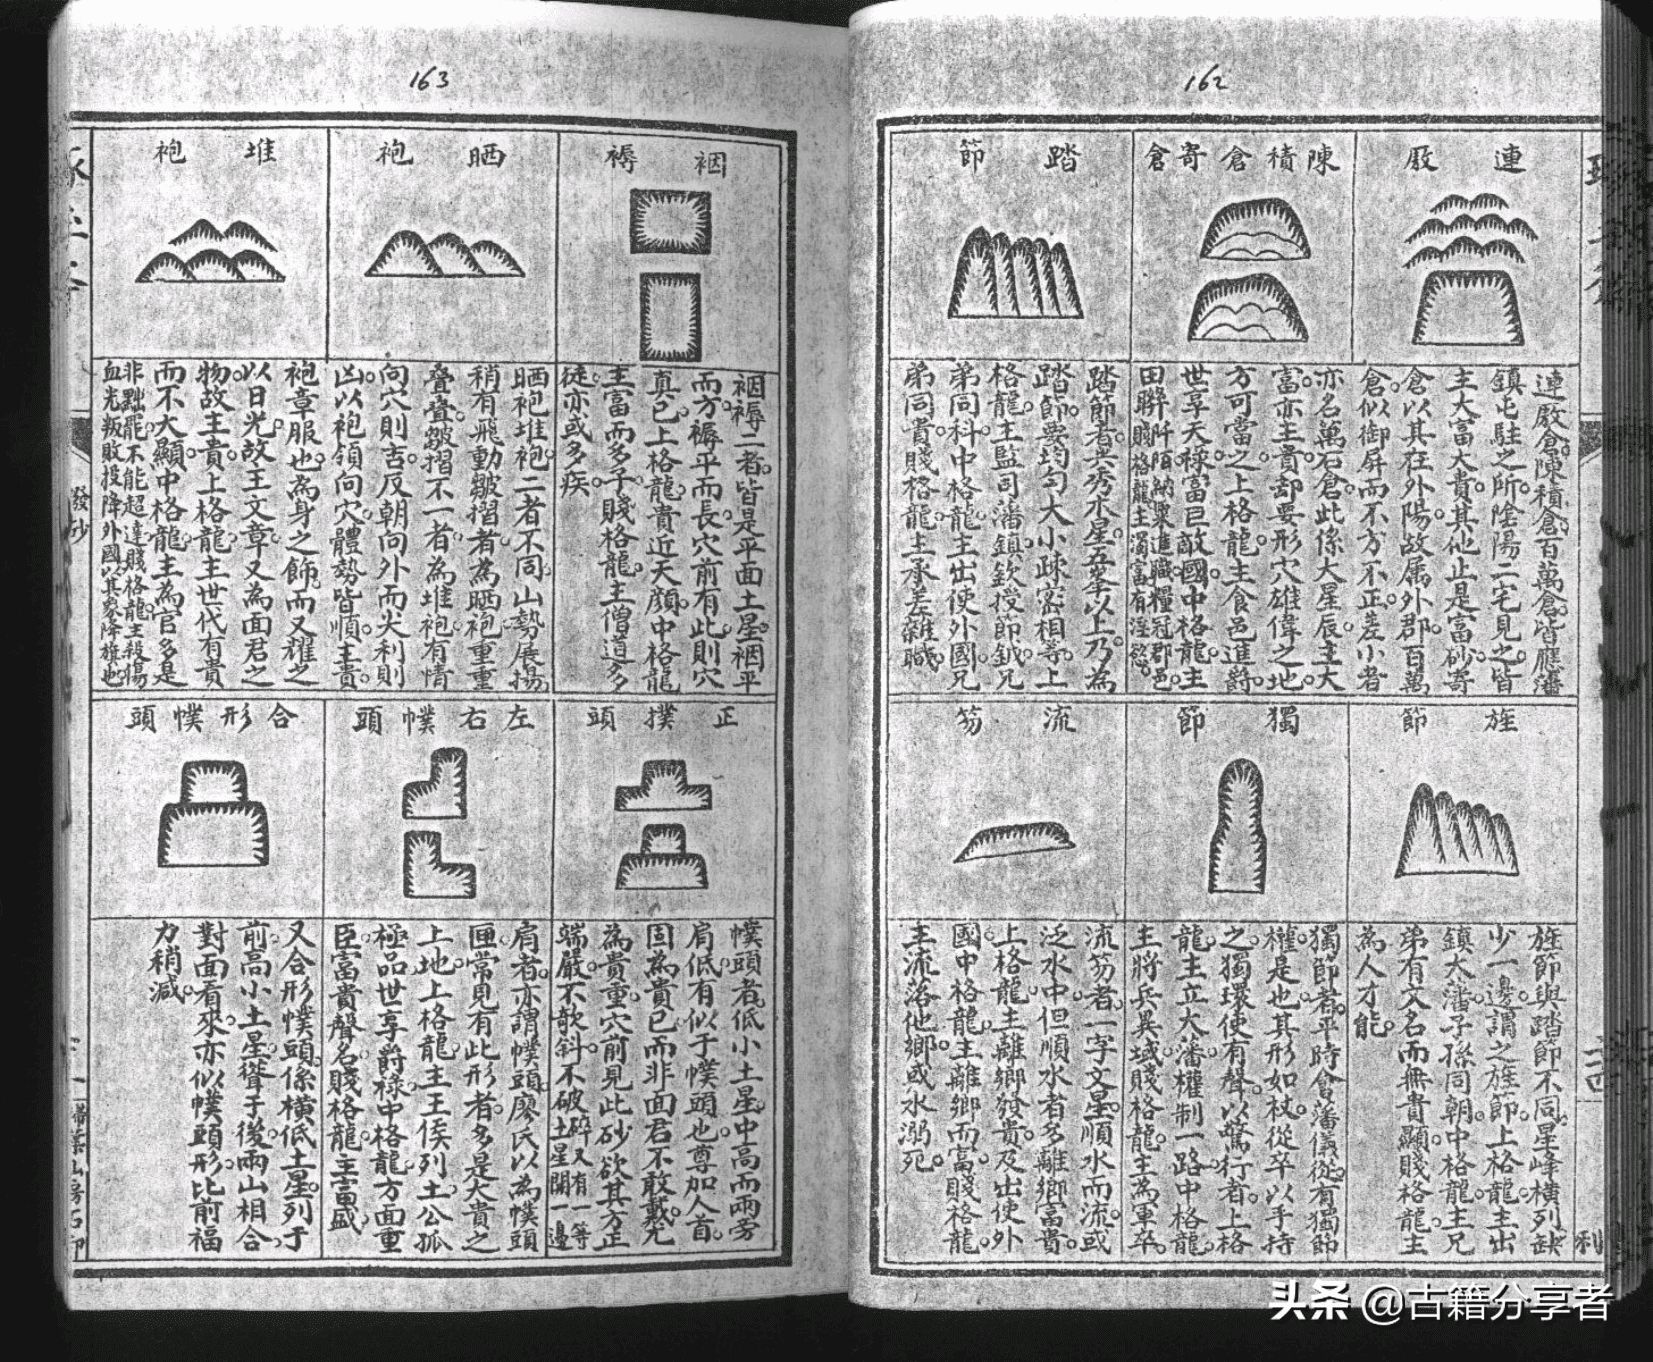 162
連 廒
陳 積 倉 寄 倉
踏 節
連廒倉陳積倉百萬倉皆應藩
鎮屯駐之所陰陽二宅見之皆
主大富大貴其他止是富砂寄
倉以其在外陽故属外郡百萬
倉似御屏而不方不正差小者
亦名萬石倉此係大星辰主大
富亦主貴却要形穴雄偉之地
方可當之上格龍主食邑進爵
世享天祿富巨敵國中格龍主
田聯阡陌納粟進職糧冠郡邑
賤格龍主濁富有淫慾
踏節者與秀水星五峯以上乃為
踏節要均勻大小疎密相等上
格龍主監司潘鎮欽授節鉞兄
弟同科中格龍主出使外國兄
弟同貴賤格龍主承差雜職
旌 節
獨 節
流 笏
旌節與踏節不同星峰橫列缺
少一邊謂之旌節上格龍主出
鎮大藩子孫同朝中格龍主兄
弟有文名而無貴顯賤格龍主
為人才能
獨節者平時會藩儀從有獨節
權是也其形如杖從卒以手持
之獨環使有聲以驚行者上格
龍主立大藩權制一路中格龍
主將兵異域賤格龍主為軍卒
流笏者一字文星順水而流或
泛水中但順水者多離鄉富貴
上格龍主離鄉發貴及出使外
國中格龍主離鄉而富賤格龍
主流落他鄉或水溺死
利
163
裀 褥
晒 袍
堆 袍
裀褥二者皆是平面土星裀平
而方褥平而長穴前有此則穴
真已上格龍貴近天顏中格龍
主富而多子賤格龍主僧道多
徒亦或多疾
晒袍堆袍二者不同山勢展揚
稍有飛動皺摺者為晒袍重重
疊疊皺摺不一者為堆袍有情
向穴則吉反朝向外而尖利則
凶以袍領向穴體勢皆順主貴
袍章服也為身之飾而又耀之
以日光故王文章又為面君之
物故主貴上格龍主世代有貴
而不大顯中格龍主為官多是
非黜罷不能超達賤格龍主殺傷
血光叛敗投降外國以其象降旗也
正 撲 頭
左 右 幞 頭
合 形 幞 頭
幞頭者低小土星中高而兩旁
肩低有似于幞頭也尊加人首
固為貴已而非面君不敢戴尤
為貴重穴前見此砂欲其方正
端嚴不欹斜不破碎又有一等
土星開一邊
肩者亦謂幞頭廖氏以為幞頭
匣常見有此形者多是大貴之
上地上格龍主王侯列土公孤
極品世享爵祿中格龍方面重
臣富貴聲名賤格龍主富盛
又合形幞頭係橫低土星列于
前高小土星聳于後兩山相合
對面看來亦似幞頭形比前福
力稍減
發砂
掃葉山房石印
头条 @古籍分享者